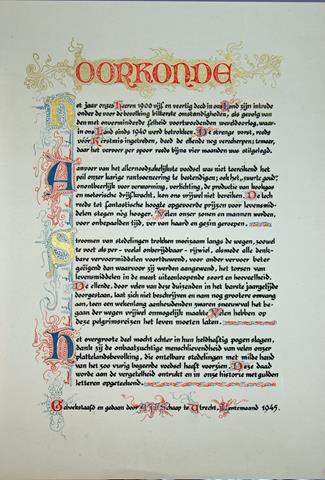 OORKONDE
Het jaar onzes Heeren 1900 vijf en veertig deed in ons Land zijn intrede
onder de voor de bevolking bitterste omstandigheden, als gevolg van
den met onverminderde felheid voortwoedenden wereldoorlog, waar-
in ons Land sinds 1940 werd betrokken. De strenge vorst, reeds
vóór Kerstmis ingetreden, deed de ellende nog verscherpen; temeer,
daar het vervoer per spoor reeds bijna vier maanden was stilgelegd.
Aanvoer van het allernoodzakelijkste voedsel was niet toereikend het
peil onzer karige rantsoenering te bestendigen; ook het „zwarte goud",
onontbeerlijk voor verwarming, verlichting, de productie van kookgas
en motorische drijfkracht, kon ons vrijwel niet bereiken. De toch
reeds tot fantastische hoogte opgevoerde prijzen voor levensmid-
delen stegen nóg hooger. Velen onzer zonen en mannen werden,
voor onbepaalden tijd, ver van haard en gezin geroepen.
Stroomen van stedelingen trokken moeizaam langs de wegen, zoowel
te voet als per - veelal onberijdbaar - rijwiel, alsmede alle denk-
bare vervoermiddelen voortduwend, voor ander vervoer beter
geëigend dan waarvoor zij werden aangewend, het torsen van
levensmiddelen in de meest uiteenloopende soort en hoeveelheid.
De ellende, door velen van deze duizenden in het barste jaargetijde
doorstaan, laat zich niet beschrijven en nam nog grootere omvang
aan, toen een wekenlang aanhoudenden zwaren sneeuwval het be-
gaan der wegen vrijwel onmogelijk maakte. Velen hebben op
deze pelgrimsreizen het leven moeten laten.
Het overgroote deel mocht echter in hun heldhaftig pogen slagen,
dank zij de onbaatzuchtige menschlievendheid van velen onzer
plattelandsbevolking, die ontelbare stedelingen met milde hand
van het zoo vurig begeerde voedsel heeft voorzien. Deze daad
worde aan de vergetelheid ontrukt en in onze historie met gulden
letteren opgeteekend.
Geboekstaafd en gedaan door Schaap te Utrecht, Lentemaand 1945.